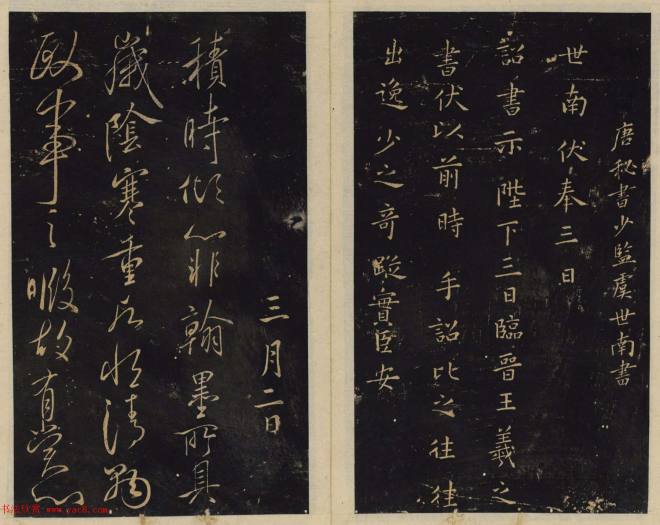 唐秘書少監虞世南書
世南伏奉三日
詔書示陛下三日臨晉王羲之
書伏以前時手詔比之往往
出逸少之奇蹤實臣安
三月二日
積時傾心非翰墨所具
歲陰寒重於清
政事之暇故有賞心
书法欣赏 www.yac8.com